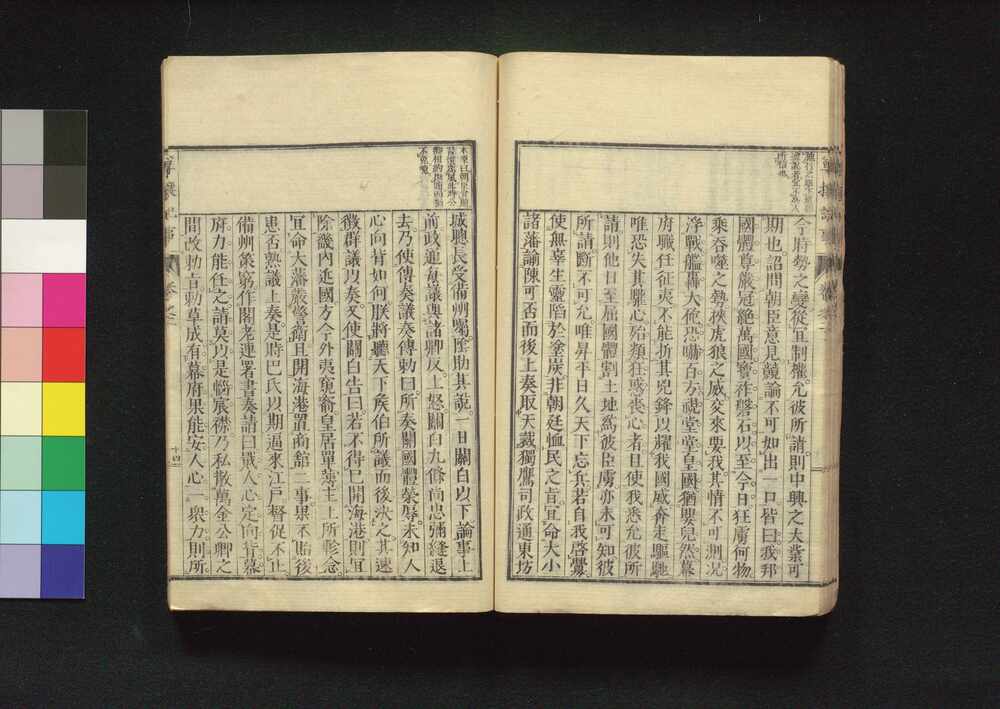 今時勢之變從宜制權允彼所請則中興之大業可
期也詔問朝臣意見競論不可如出一口皆曰我邦
國體尊嚴冠絶萬國寶祚磐石以至今日狂虜何物
乘吞噬之勢挾虎狼之威交來要我其情不可測况
浮戰艦轟大砲恐嚇百方視堂堂皇國猶嬰兒然幕
府職任征夷不能折其兇鋒以耀我國威奔走驅馳
唯恐失其驩心殆類狂惑喪心者且使我悉允彼所
請則他日至屈國體割土地爲彼臣虜亦未可知彼
所請斷不可允唯昇平日久天下忘兵若自我啓釁
使無辜生靈陷於塗炭非朝廷恤民之旨宜命大小
諸藩諭陳可否而後上奏取天裁獨鷹司政通東坊
城聰長受備州囑陰助其說一日關白以下論事上
前政通每議與諸卿反上怒關白九條尚忠彌縫退
去乃使傳奏議奏傳勅曰所奏關國體榮辱未知人
心向背如何朕將聽天下矦伯所議而後決之其速
徵群議以奏又使關白告曰若不得已開海港則宜
除畿內近國方今外夷窺窬皇居單薄主上所軫念
宜命大藩嚴警衛且開海港置商館二事果不貽後
患否熟議上奏是時巴氏以期逼來江戶督促不止
備州策窮作閣老連署書奏請曰戢人心定向背幕
府力能任之請莫以是惱宸襟乃私散萬金公卿之
間改勅旨勅草成有幕府果能安人心一衆力則所
十四